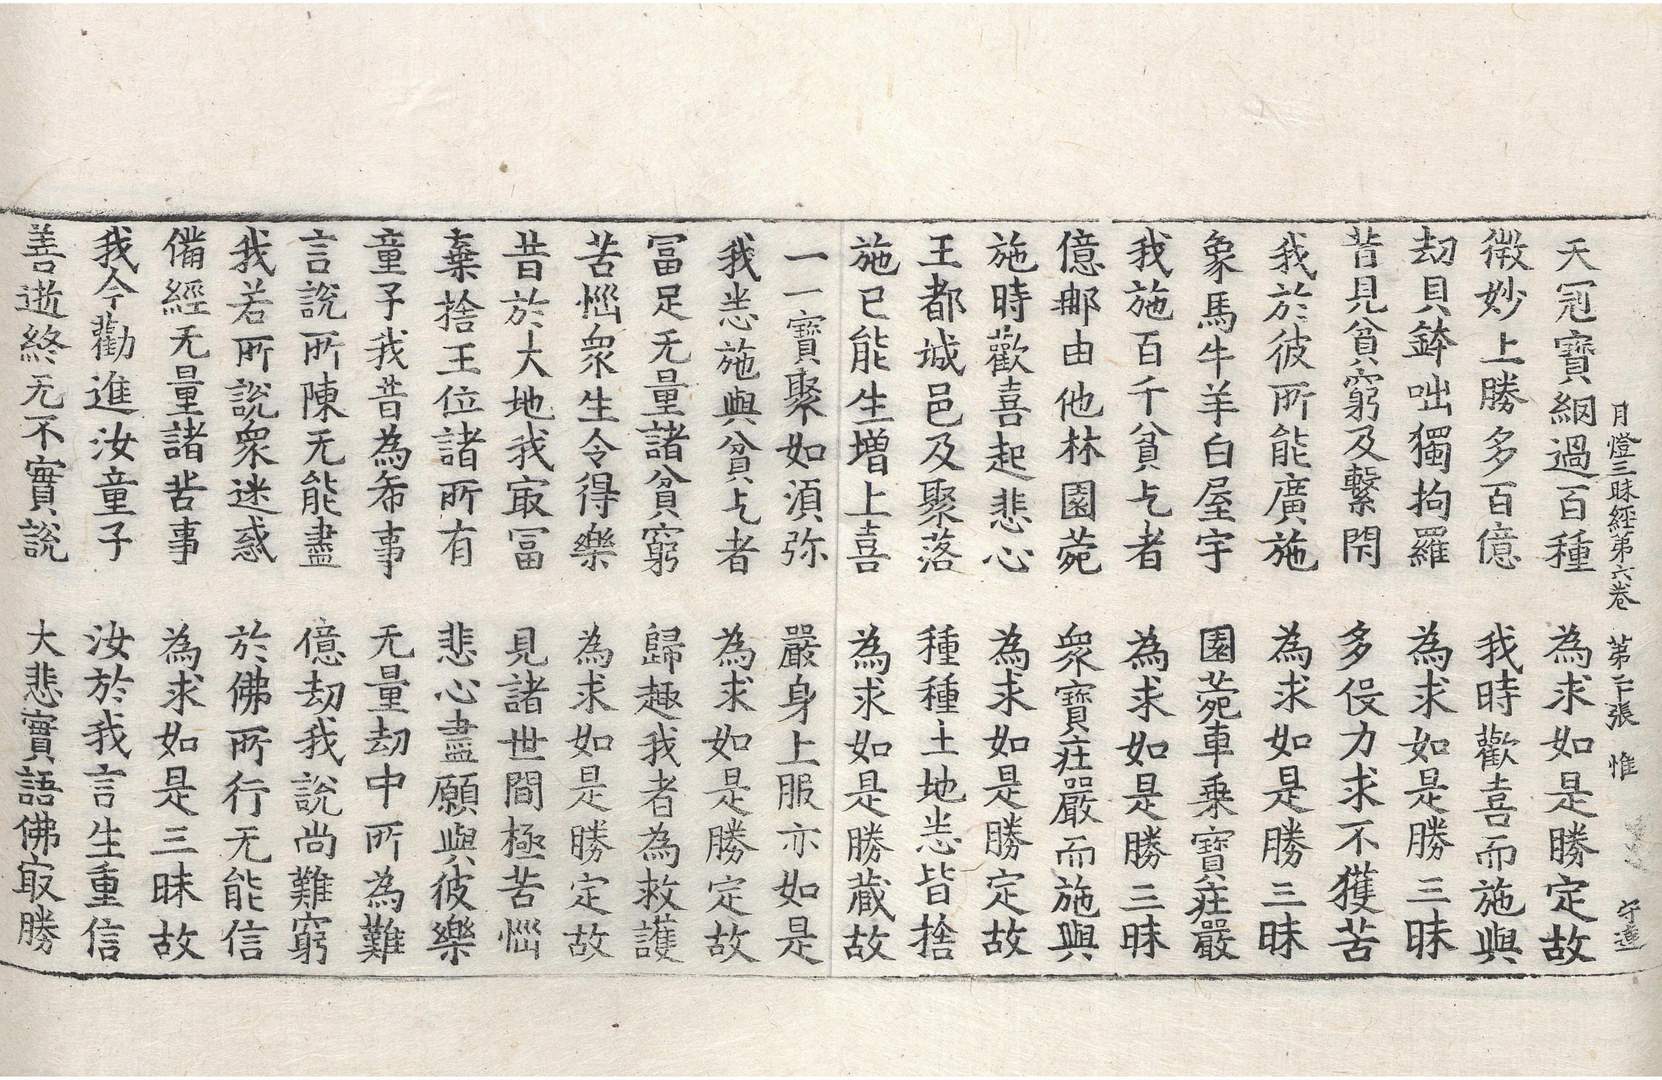 月燈三昧經第六卷 第二張 惟
天冠寶網過百種 為求如是勝定故
微妙上勝多百億 我時歡喜而施與
劫貝鉢咄獨拘羅 為求如是勝三昧
昔見貧窮及繫閇 多伇力求不獲苦
我於彼所能廣施 為求如是勝三昧
象馬牛羊白屋宇 園菀車乗寶庄嚴
我施百千貧乞者 為求如是勝三昧
億郍由他林園菀 衆寶庄嚴而施與
施時歡喜起悲心 為求如是勝定故
王都城邑及聚落 種種土地悉皆捨
施已能生增上喜 為求如是勝蔵故
一一寶聚如湏弥 嚴身上服亦如是
我悉施與貧乞者 為求如是勝定故
冨足无量諸貧窮 歸趣我者為救護
苦惱衆生令得樂 為求如是勝定故
昔於大地我㝡冨 見諸世間極苦惱
棄捨王位諸所有 悲心盡願與彼樂
童子我昔為希事 无量劫中所為難
言說所陳无能盡 億劫我說尚難窮
我若所說衆迷惑 於佛所行无能信
備經无量諸苦事 為求如是三昧故
我今勸進汝童子 汝於我言生重信
善逝終无不實說 大悲實語佛㝡勝